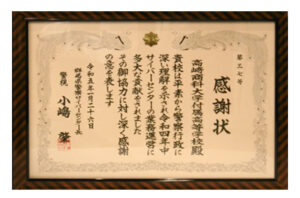 第三七号
感謝状
高崎商科大学付属高等学校殿
貴校は平素から警察行政に
深い理解を示され令和四年中
サイバーセンターの業務運営に
多大な貢献をされました
その御協力に対し深く感謝
の意を表します
令和五年一月二十六日
群馬県警察サイバーセンター長
警視 小嶋